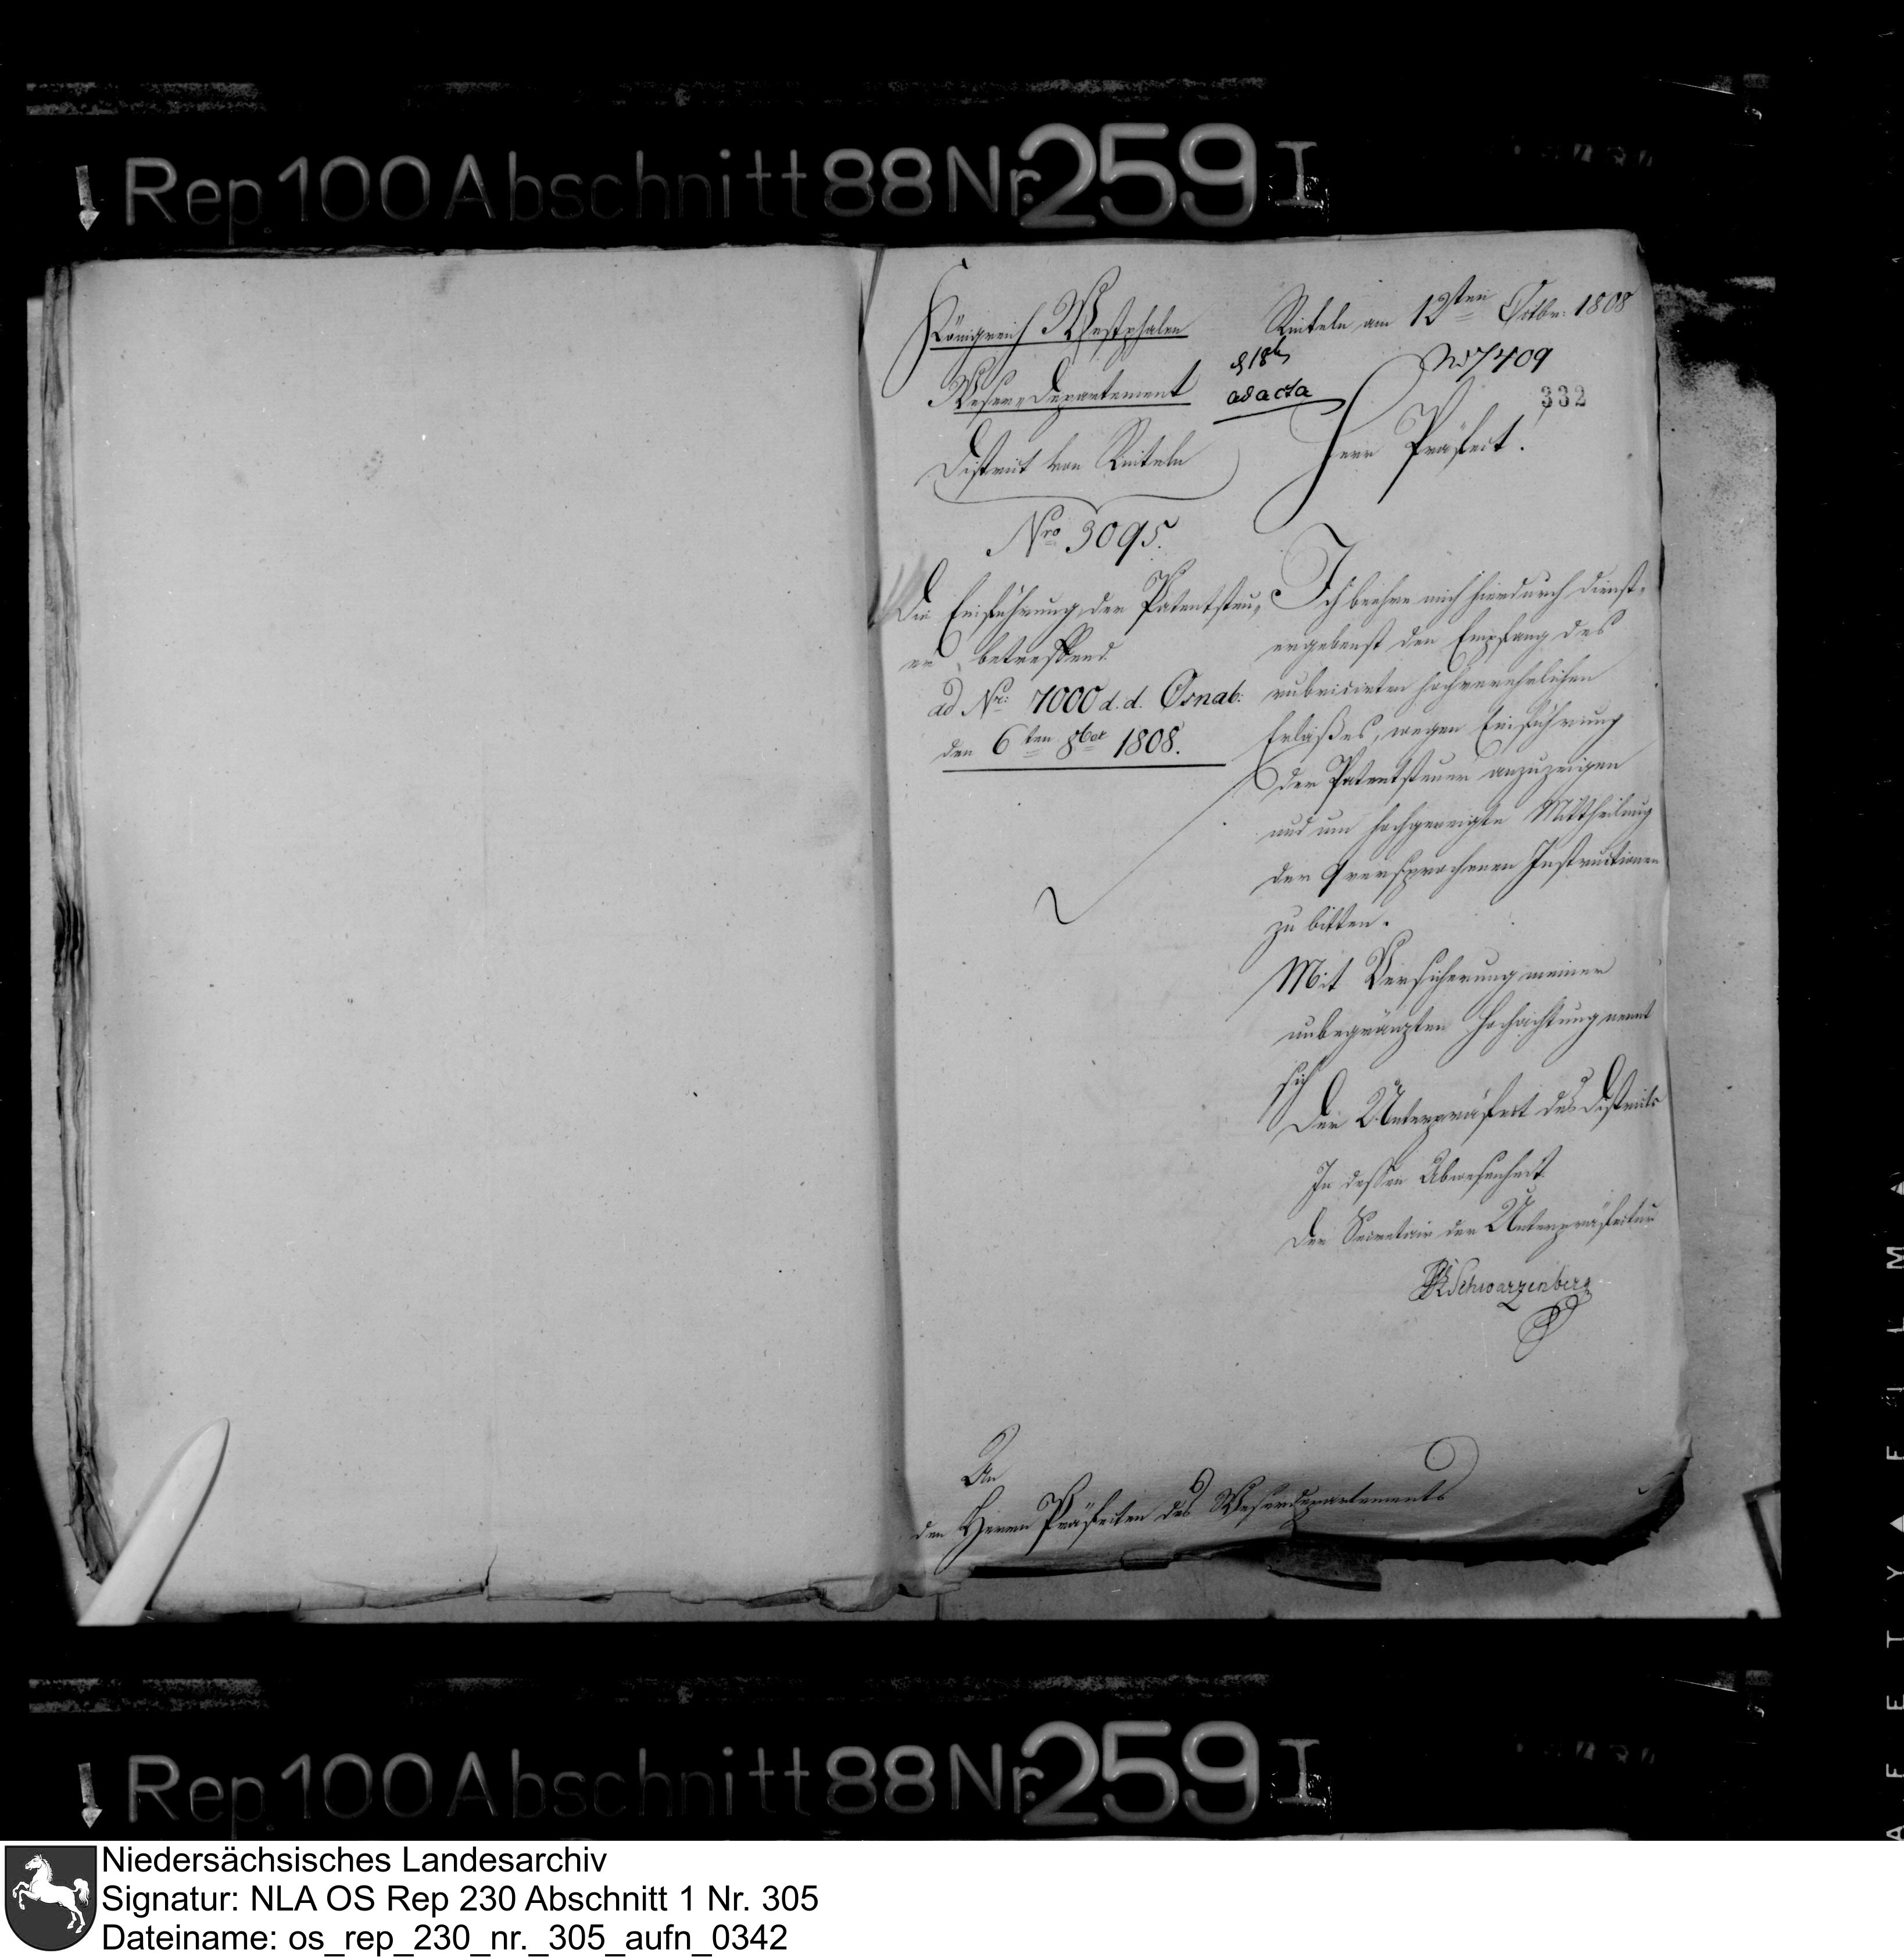 Rep. 100 Abschnitt 88 Nr. 259 I
Königreich Westphalen
Weser-Departement
District von Rinteln
Nro 3095.
Die Einführung der Patentsteu-
er betreffend.
ad Nr: 7000 d. d. Osnab:
den 6ten 8ber 1808.
Rinteln am 12ten Octbr: 1808
No 7409
ad acta
332
Herr Präfect!
Ich beehre mich hierdurch dienst-
ergebenst den Empfang des
rubricirten hochverehrlichen
Erlaßes, wegen Einführung
der Patentsteuer anzuzeigen
und um hochgeneigte Mittheilung
der versprochenen Instructionen
zu bitten.
Mit Versicherung meiner
unbegränzten Hochachtung nennt
sich
Der Unterpräfect des Districts
In dessen Abwesenheit
Der Secretair der Unterpräfectur
Schwarzenberg
An
den Herrn Präfecten des Weserdepartements
Rep. 100 Abschnitt 88 Nr. 259 I
Niedersächsisches Landesarchiv
Signatur: NLA OS Rep 230 Abschnitt 1 Nr. 305
Dateiname: os_rep_230_nr._305_aufn_0342